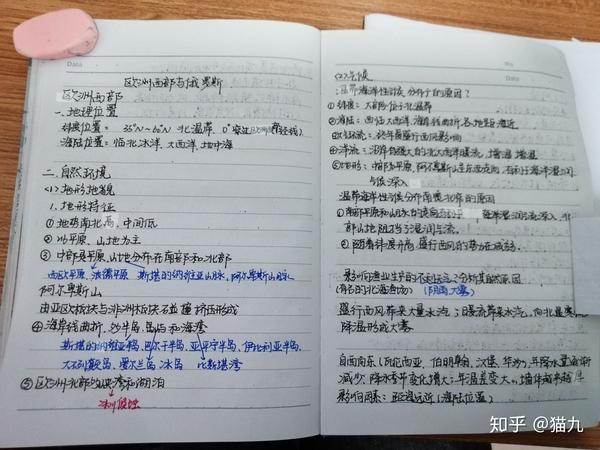 Data
欧洲西部与俄罗斯
欧洲西部
一、地理位置
纬度位置: 35°N~60°N 北温带 0°
海陆位置: 临北冰洋、大西洋、地中海
二、自然环境
<1> 地形地貌
1. 地形特征
① 地势南北高,中间低
② 以平原、山地为主
③ 中部是平原、山地分布在南部和北部
西欧平原 波德平原 斯堪的纳维亚山脉,阿尔卑斯山脉
阿尔卑斯山
由亚欧板块与非洲板块碰撞挤压形成
④ 海岸线曲折,多半岛、岛屿和海湾
斯堪的纳维亚半岛、日德兰半岛、亚平宁半岛、伊比利亚半岛、
大不列颠岛、爱尔兰岛 冰岛 比斯堪湾
⑤ 欧洲北部多峡湾和湖泊
冰川侵蚀
No
Date
<2> 气候
温带海洋性气候分布广的原因?
① 纬度: 大部分位于北温带
② 海陆: 西临大西洋,海岸线曲折,各地距海近
终年受盛行西风影响
④ 洋流: 沿岸有强大的北大西洋暖流,增温增湿
⑤ 地形: 中部为平原,阿尔卑斯山呈东西走向,有利于海洋湿润
气候深入
温带海洋性气候分布南宽北窄的原因?
① 南部平原和山脉
部山地阻挡了湿润气流。
② 随着纬度升高,盛行西风的势力在减弱。
影响渔业生产的
(有名的北海渔场)
盛行西风带来大量水汽;暖流带来水汽,
降温形成大雾
自西向东(瓦伦西亚、伯明翰、汉堡、华沙),年降水量逐渐
减少,降水季节变化增大;年温差变大。墙体越来越厚
影响因素: 距海远近(海陆位置)
知乎 @猫九